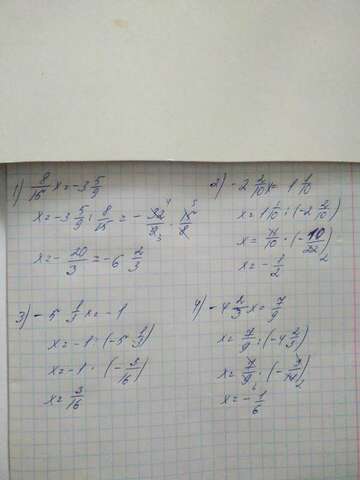 1) 8/15 x = -3 5/9
x = -3 5/9 : 8/15 = - 32/9 · 15/8
x = - 20/3 = -6 2/3
2) -2 2/10 x = 1 1/10
x = 1 1/10 : (-2 2/10)
x = 11/10 · (- 10/22)
x = - 1/2
3) -5 1/3 x = -1
x = -1 : (-5 1/3)
x = -1 · (- 3/16)
x = 3/16
4) -4 2/3 x = 7/9
x = 7/9 : (-4 2/3)
x = 7/9 · (- 3/14)
x = - 1/6